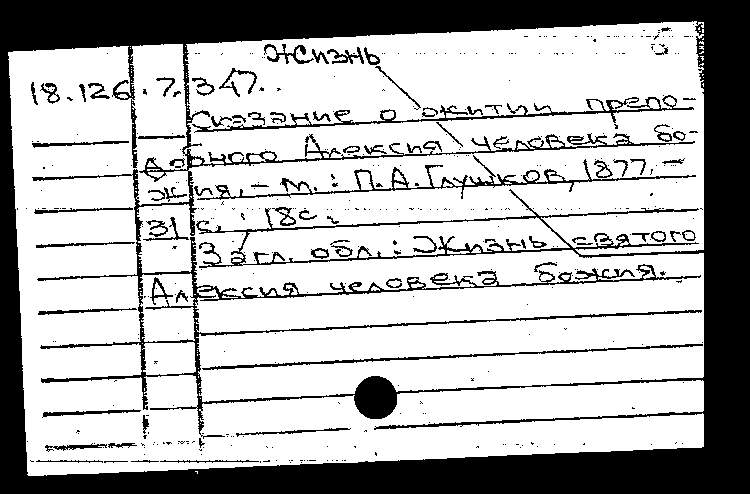 Жизнь
18.126.7.347.
Сказание о житии препо-
добного Алексия человека бо-
жия. - М. : П.А.Глушков, 1877. -
31 с. ; 18 с.
Загл. обл. : Жизнь святого
Алексия человека божия.